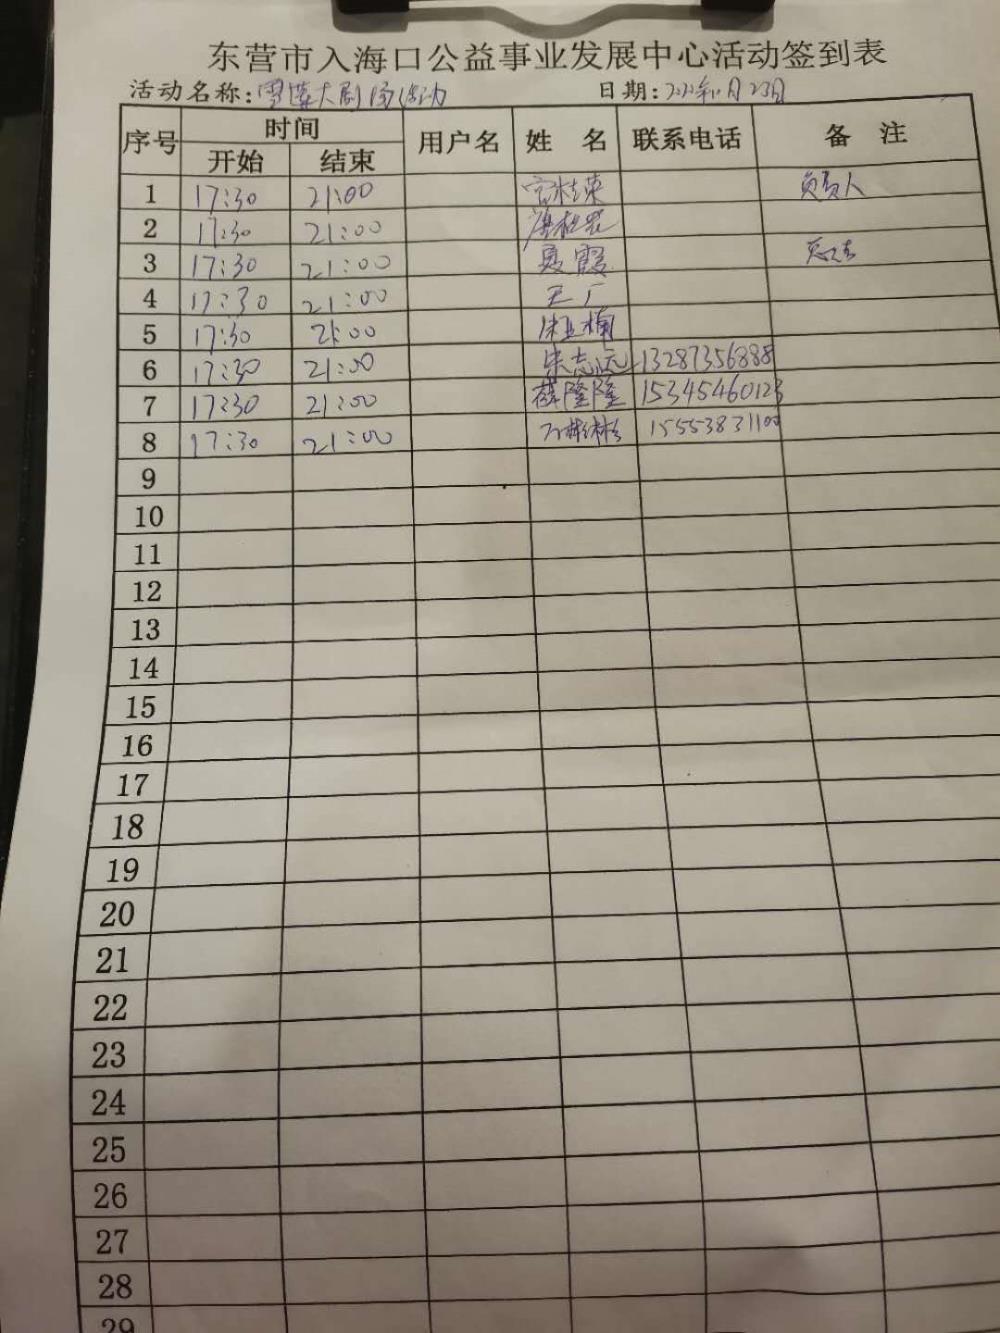 东营市入海口公益事业发展中心活动签到表
活动名称:雪莲大剧场活动 日期:2022年11月23日
序号 时间 用户名 姓 名 联系电话 备 注
开始 结束
1 17:30 21:00 负责人
2 17:30 21:00
3 17:30 21:00 夏霞
4 17:30 21:00 王广
5 17:30 21:00
6 17:30 21:00 宋志远 13287356888
7 17:30 21:00 薛隆隆 15345460123
8 17:30 21:00 15553831100
9
10
11
12
13
14
15
16
17
18
19
20
21
22
23
24
25
26
27
28
29